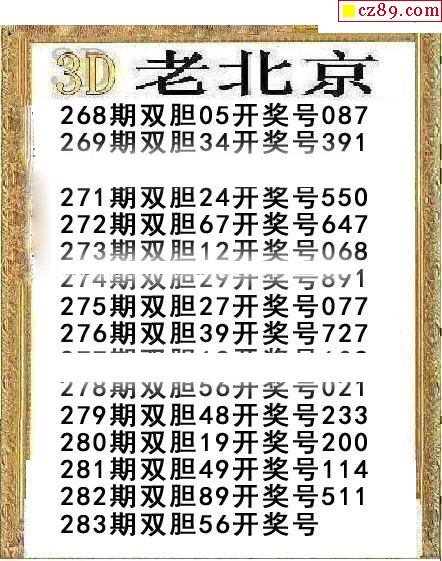 cz89.com
3D 老北京
268期双胆05开奖号087
269期双胆34开奖号391
271期双胆24开奖号550
272期双胆67开奖号647
273期双胆12开奖号068
274期双胆29开奖号891
275期双胆27开奖号077
276期双胆39开奖号727
278期双胆56开奖号021
279期双胆48开奖号233
280期双胆19开奖号200
281期双胆49开奖号114
282期双胆89开奖号511
283期双胆56开奖号